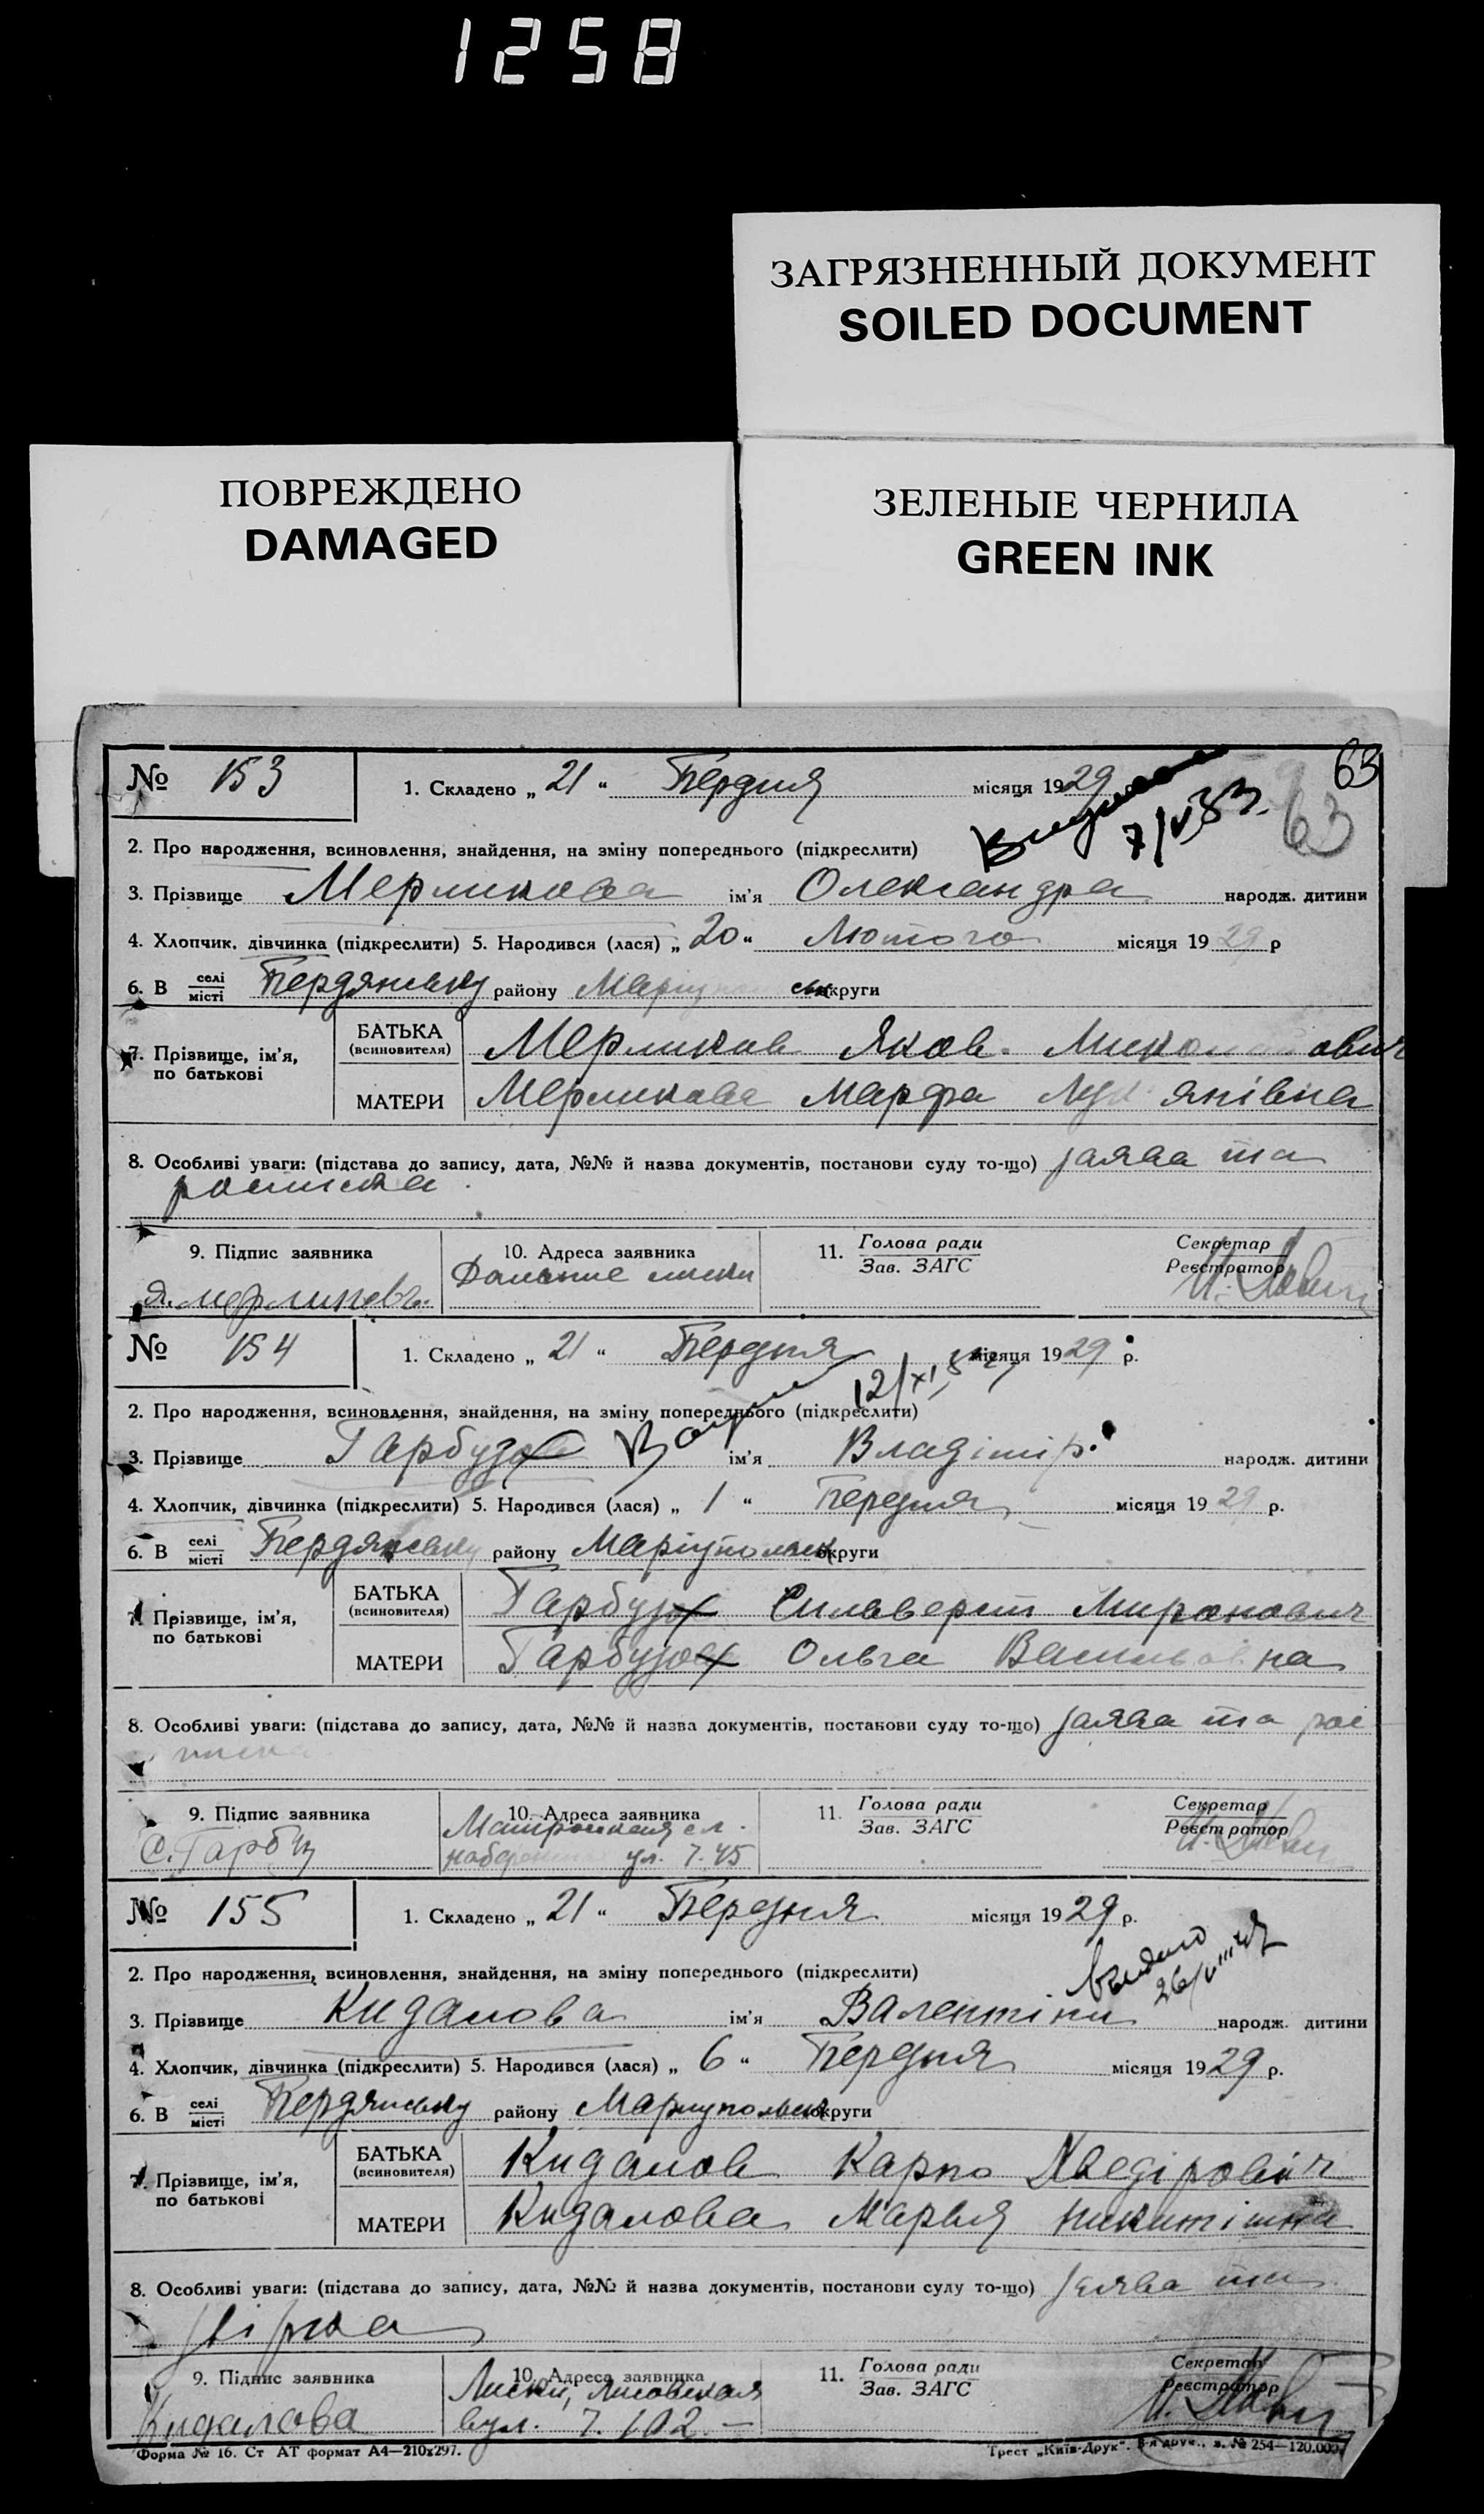 1258
ЗАГРЯЗНЕННЫЙ ДОКУМЕНТ
SOILED DOCUMENT
ПОВРЕЖДЕНО
DAMAGED
ЗЕЛЕНЫЕ ЧЕРНИЛА
GREEN INK
63
63
№ 153 1. Складено „ 21 “ Бердня місяця 1929
7/V 33.
2. Про народження, всиновлення, знайдення, на зміну попереднього (підкреслити)
3. Прізвище Мерликова ім'я Олександра народж. дитини
4. Хлопчик, дівчинка (підкреслити) 5. Народився (лася) „ 20 “ Лютого місяця 1929 р
6. В селі/місті Бердянську району Маріупольськ округи
7. Прізвище, ім'я, по батькові
БАТЬКА (всиновителя) Мерликов Яков Миколайович
МАТЕРИ Мерликова Марфа Лукянівна
8. Особливі уваги: (підстава до запису, дата, №№ й назва документів, постанови суду то-що) заява та
росписка
9. Підпис заявника 10. Адреса заявника 11. Голова ради / Зав. ЗАГС Секретар / Реєстратор
Я. Мерликовъ. Дальние лиски
№ 154 1. Складено „ 21 “ Бердня місяця 1929 р.
12/XI
2. Про народження, всиновлення, знайдення, на зміну попереднього (підкреслити)
3. Прізвище Гарбуз ім'я Владімір народж. дитини
4. Хлопчик, дівчинка (підкреслити) 5. Народився (лася) „ 1 “ Бередня місяця 1929 р.
6. В селі/місті Бердянську району Маріупольськ округи
7. Прізвище, ім'я, по батькові
БАТЬКА (всиновителя) Гарбуз Сильверст Миронович
МАТЕРИ Гарбузова Ольга Васильовна
8. Особливі уваги: (підстава до запису, дата, №№ й назва документів, постанови суду то-що) заява та рос
писка
9. Підпис заявника 10. Адреса заявника 11. Голова ради / Зав. ЗАГС Секретар / Реєстратор
С. Гарбуз
ул. 7. 45
№ 155 1. Складено „ 21 “ Бередня місяця 1929 р.
Видано
2. Про народження, всиновлення, знайдення, на зміну попереднього (підкреслити)
3. Прізвище Кидалова ім'я Валентіни народж. дитини
4. Хлопчик, дівчинка (підкреслити) 5. Народився (лася) „ 6 “ Бередня місяця 1929 р.
6. В селі/місті Бердянську району Мариупольськ округи
7. Прізвище, ім'я, по батькові
БАТЬКА (всиновителя) Кидалов Карпо Хведірович
МАТЕРИ Кидалова Мария Никитішна
8. Особливі уваги: (підстава до запису, дата, №№ й назва документів, постанови суду то-що) заява та
звірка
9. Підпис заявника 10. Адреса заявника 11. Голова ради / Зав. ЗАГС Секретар / Реєстратор
Кидалова Лиски, Лисовская
вул. 7. 102.
Форма № 16. Ст АТ формат А4—210x297.
Трест „Київ-Друк“. 3-я друк., з. № 254—120.000.